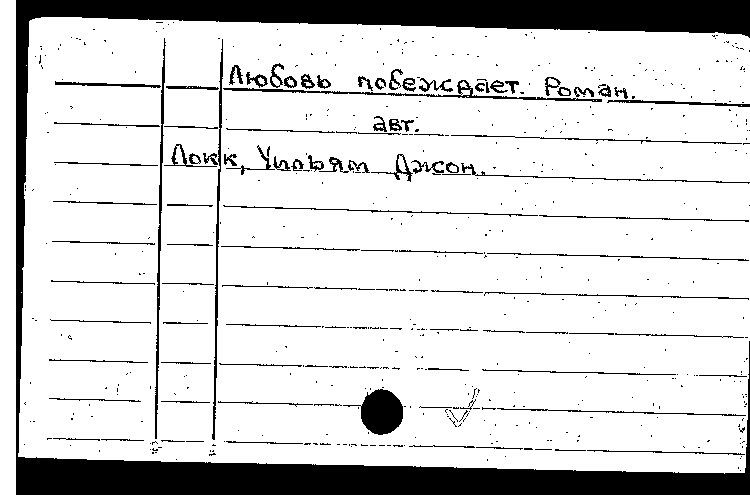 Любовь побеждает. Роман.
авт.
Локк, Уильям Джон.